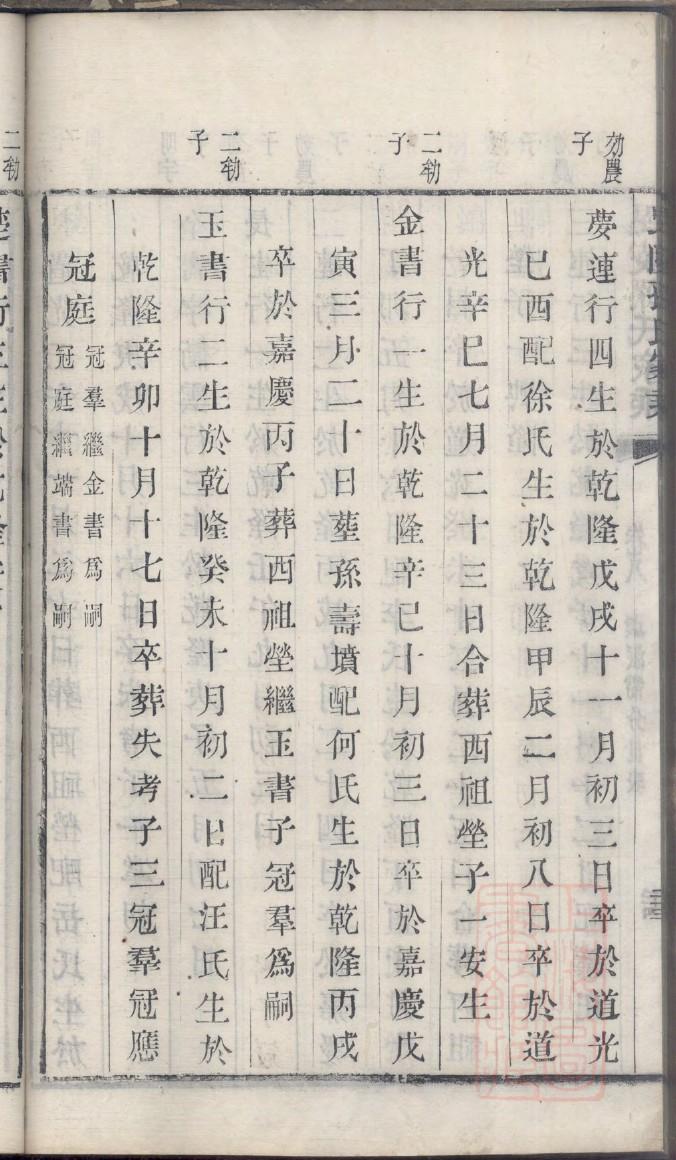 効農子
夢連行四生於乾隆戊戌十一月初三日卒於道光
己酉配徐氏生於乾隆甲辰二月初八日卒於道
光辛巳七月二十三日合葬西祖塋子一安生
二勑子
金書行一生於乾隆辛巳十月初三日卒於嘉慶戊
寅三月二十日塟孫壽墳配何氏生於乾隆丙戌
卒於嘉慶丙子葬西祖塋繼玉書子冠羣為嗣
二勑子
玉書行二生於乾隆癸未十月初二日配汪氏生於
乾隆辛卯十月十七日卒葬失考子三冠羣冠應
冠庭
冠羣繼金書為嗣
冠庭繼端書為嗣
二勑